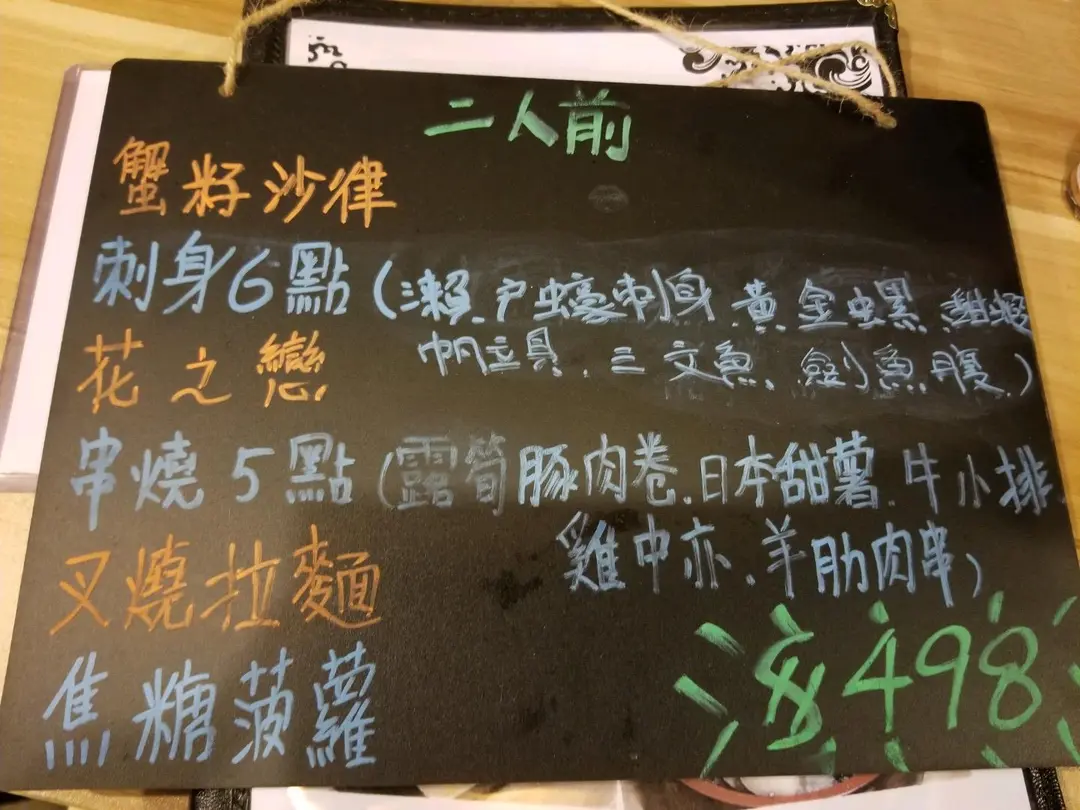 二人前
蟹籽沙律
刺身6點(瀨户蠔刺身.黃金螺.甜蝦
帆立貝.三文魚.劍魚腹)
花之戀
串燒5點(露筍豚肉卷.日本甜薯.牛小排.
雞中亦.羊肋肉串)
叉燒拉麵
焦糖菠蘿
$498